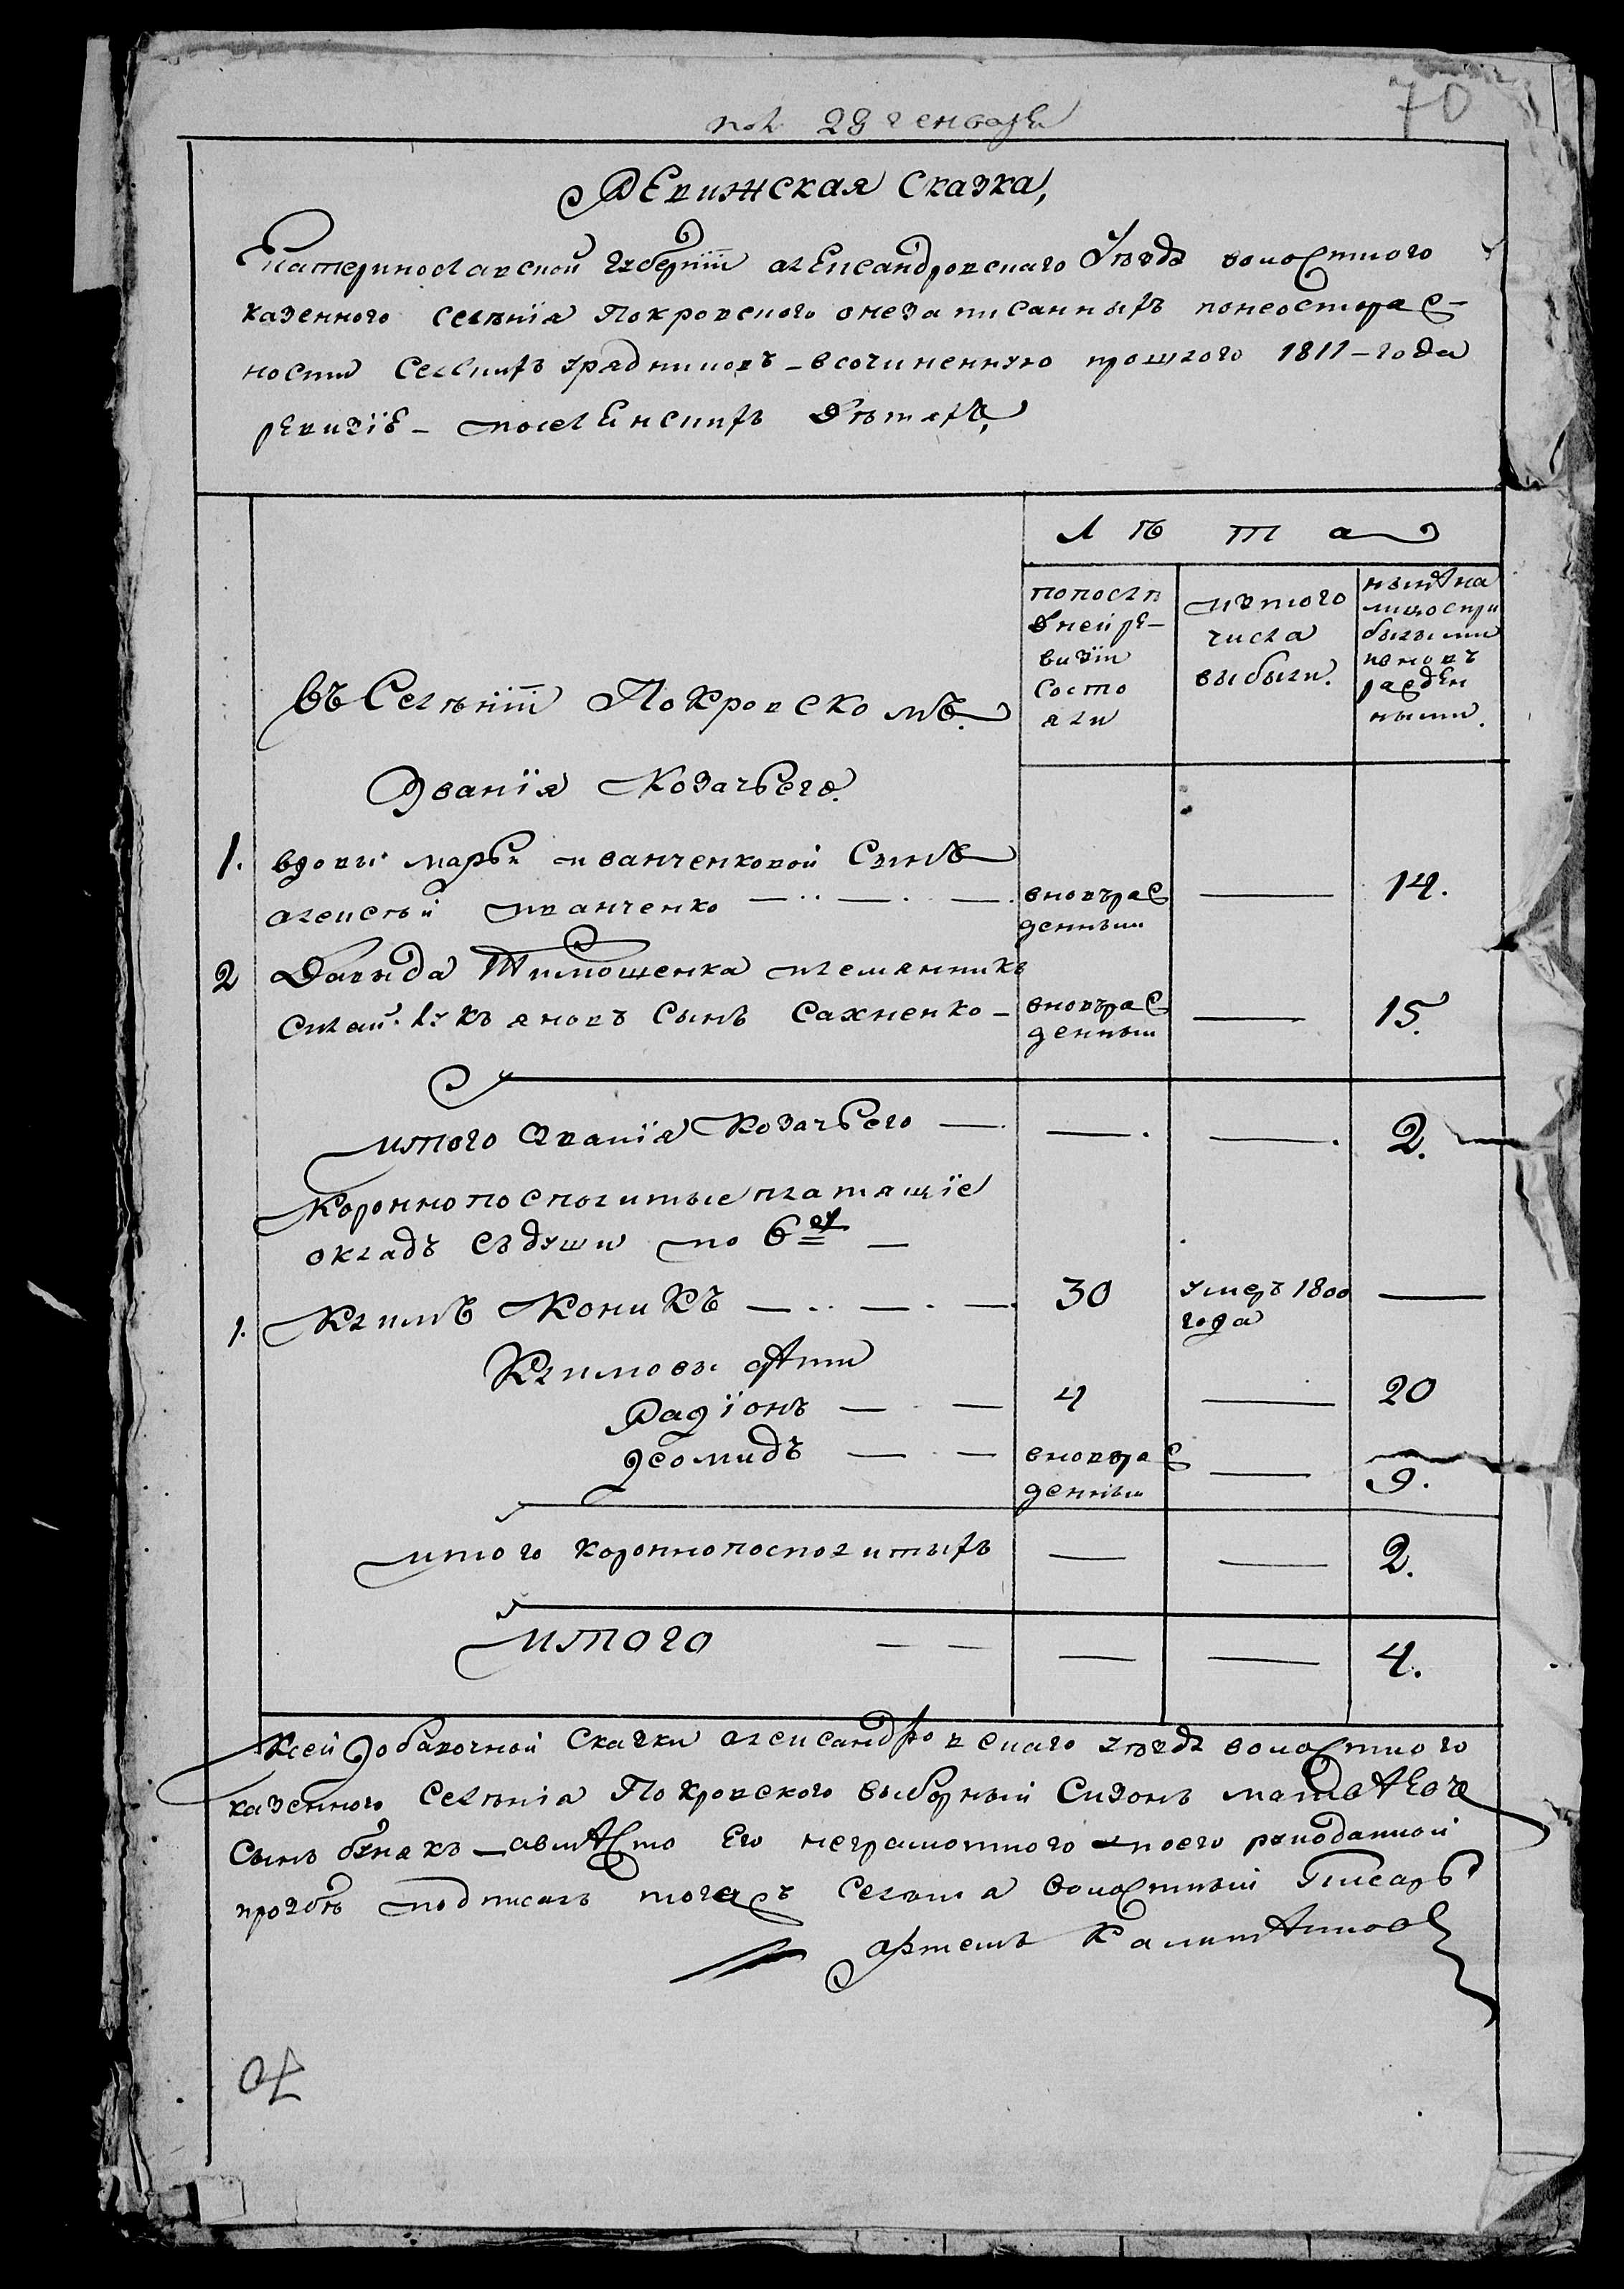 70
29 генваря
Ревижская сказка,
Екатеринославской губернїи александровского уезда волостного
казенного селенїя Покровского онезаписанныхъ понеосторож-
ности сельскихъ урядниковъ - в сочиненную прошлого 1811 - года
ревизїе - поселенскихъ дѣтяхъ,
Л ѣ т а
попослѣ
дней ре-
визїи
состо
яли
ис того
числа
выбыли.
нынѣ на
лицо спри
былыми
ивновъ
рожден
ными.
Въ Селѣнїи Покровскомъ.
Званїя Козачьего.
1. вдовы марьи иванченковой Сынъ
алексѣй иванченко вновърож
денный — 14.
2 Давыда Тимошенка племянникъ
лукьяновъ сынъ Сахненко - вновърож
денный — 15.
итого званїя Козачьего — — — 2.
Короннопосполитые платящїе
окладъ съдуши по 6
1. Климъ Коникъ 30 умеръ 1800
года —
Климовы дѣти
Радїонъ — 4 — 20
деомидъ — вноворож
денный — 9.
итого короннопосполитыхъ — — 2.
итого — — — — 4.
Ксей добавочной скаски александровского уезда волостного
казенного селѣнїя Покровского выборный Сизонъ матвѣевъ
сынъ бунякъ - авмѣсто его неграмотного ипоего рукоданной
прозбѣ подписалъ тогожъ селѣнїя волостный Писарь
артемъ
70